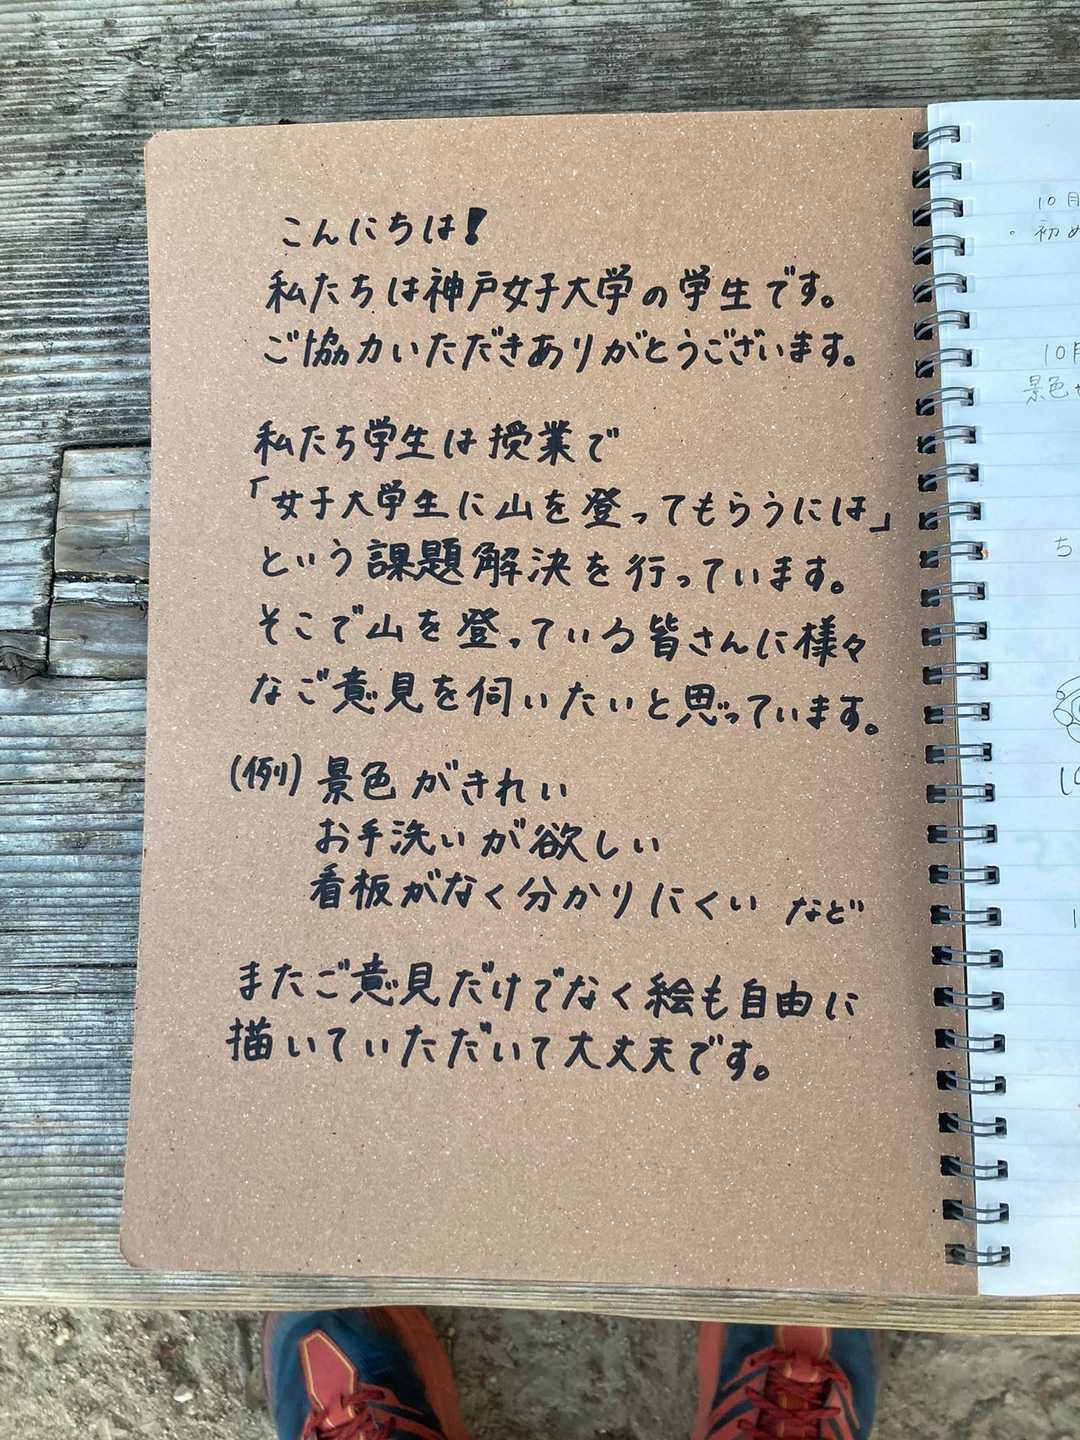 こんにちは!
私たちは神戸女子大学の学生です。
ご協力いただきありがとうございます。
私たち学生は授業で
「女子大学生に山を登ってもらうには」
という課題解決を行っています。
そこで山を登っている皆さんに様々
なご意見を伺いたいと思っています。
(例) 景色がきれい
お手洗いが欲しい
看板がなく分かりにくい など
またご意見だけでなく絵も自由に
描いていただいて大丈夫です。
10月
。初め
10月
景色
ち